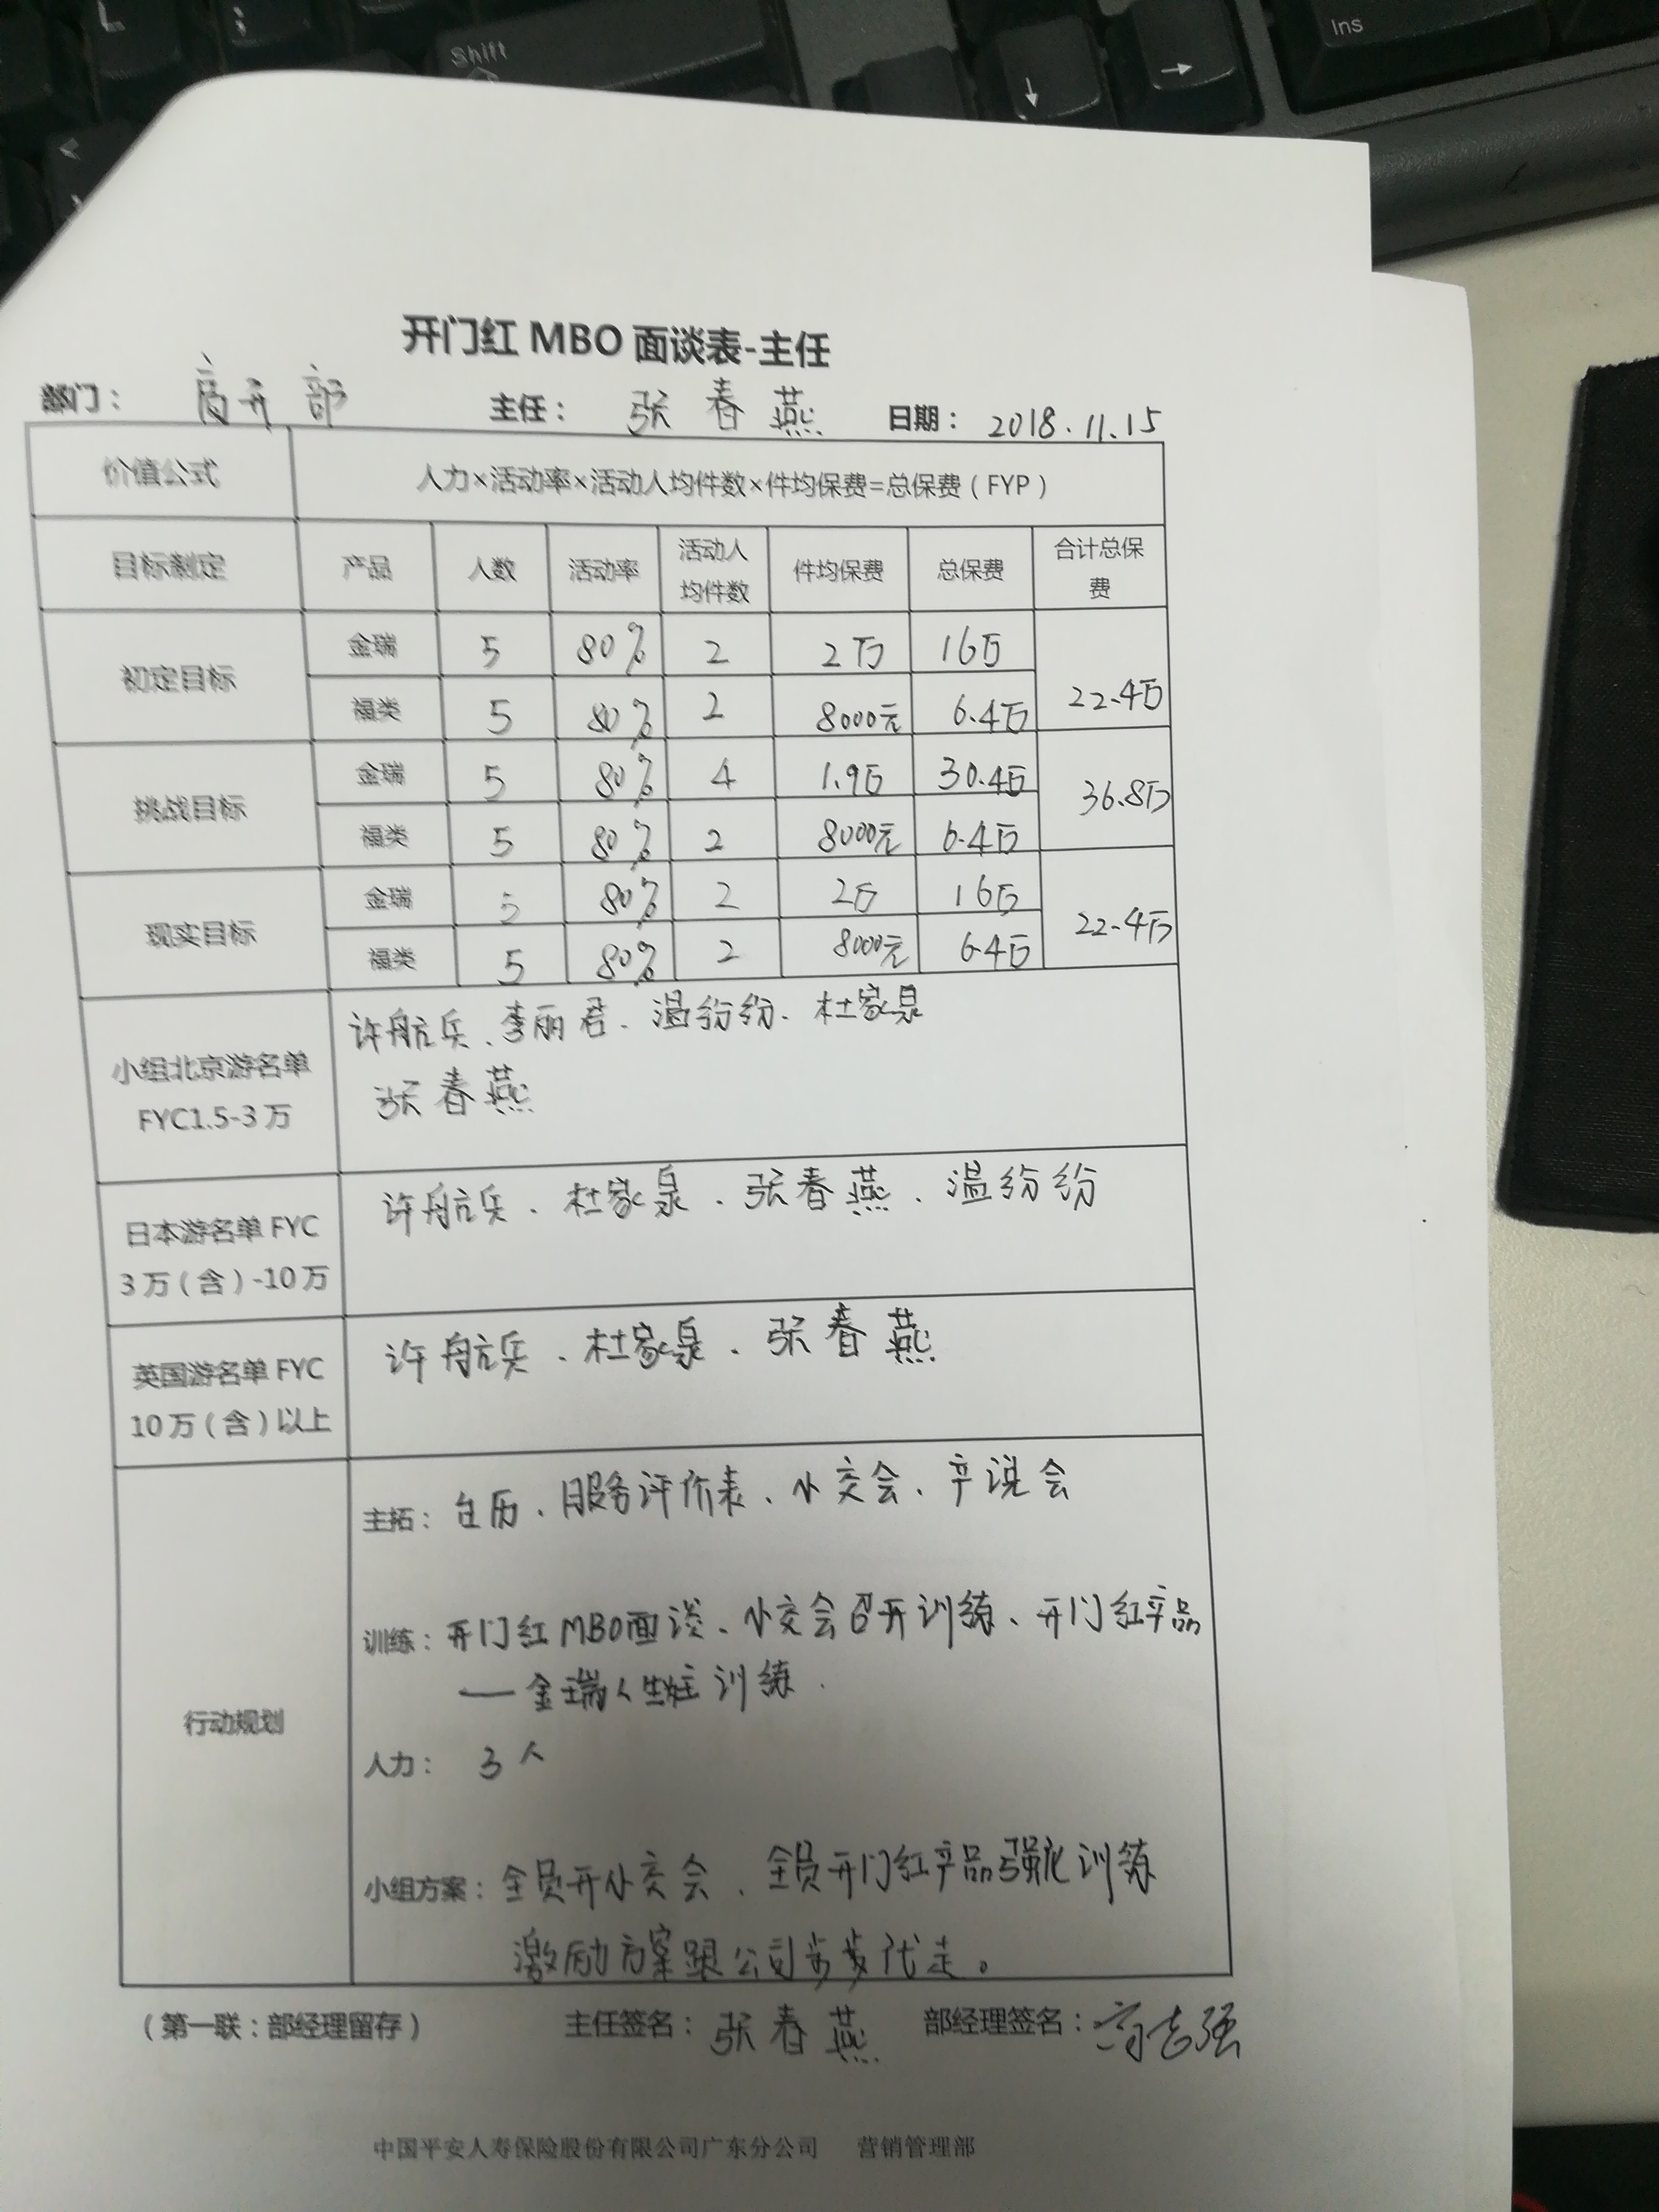 Shift
Ins
开门红 MBO 面谈表-主任
部门： 部 主任： 张春燕 日期： 2018.11.15
价值公式 人力×活动率×活动人均件数×件均保费=总保费（FYP）
目标制定 产品 人数 活动率 活动人均件数 件均保费 总保费 合计总保费
初定目标 金瑞 5 80% 2 2万 16万 22.4万
福类 5 80% 2 8000元 6.4万
挑战目标 金瑞 5 80% 4 1.9万 30.4万 36.8万
福类 5 80% 2 8000元 6.4万
现实目标 金瑞 5 80% 2 2万 16万 22.4万
福类 5 80% 2 8000元 6.4万
小组北京游名单
FYC1.5-3万
许航兵、李丽君、温纷纷、杜家泉
张春燕
日本游名单 FYC
3万（含）-10万
许航兵、杜家泉、张春燕、温纷纷
英国游名单 FYC
10万（含）以上
许航兵、杜家泉、张春燕
行动规划
主拓：台历、服务评价表、小交会、产说会
训练：开门红MBO面谈、小交会召开训练、开门红产品
——金瑞人生 训练.
人力： 3人
小组方案：全员开小交会、全员开门红产品强化训练
激励方案跟公司步步 走。
（第一联：部经理留存） 主任签名：张春燕 部经理签名： 志强
中国平安人寿保险股份有限公司广东分公司 营销管理部